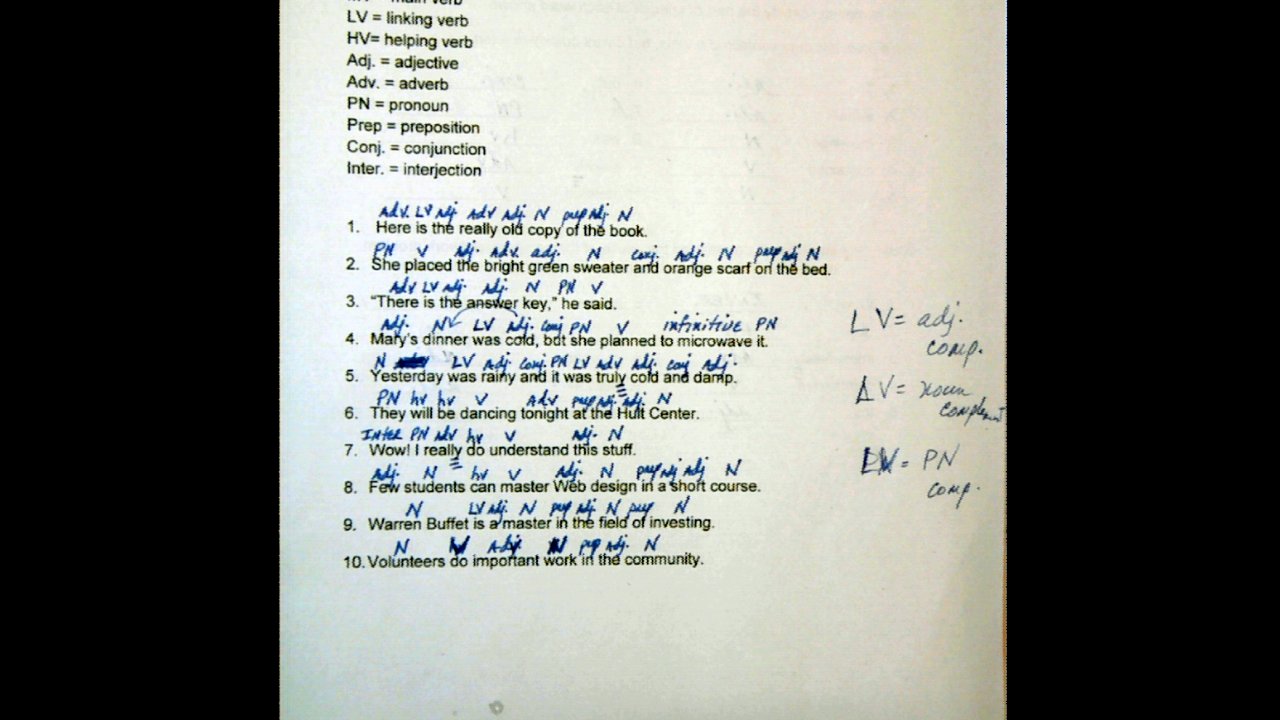 = main verb
LV = linking verb
HV= helping verb
Adj. = adjective
Adv. = adverb
PN = pronoun
Prep = preposition
Conj. = conjunction
Inter. = interjection
Adv. LV adj. Adv Adj. N prep Adj. N
1. Here is the really old copy of the book.
PN V Adj. Adv. adj. N conj. Adj. N prep adj N
2. She placed the bright green sweater and orange scarf on the bed.
Adv LV adj. Adj. N PN V
3. "There is the answer key," he said.
Adj. N LV adj. conj PN V infinitive PN
4. Mary's dinner was cold, but she planned to microwave it.
N LV Adj. conj. PN LV Adv Adj. conj Adj.
5. Yesterday was rainy and it was truly cold and damp.
PN hv hv V Adv prep Adj. adj. N
6. They will be dancing tonight at the Hult Center.
Inter PN adv hv V Adj. N
7. Wow! I really do understand this stuff.
Adj. N hv V Adj. N prep adj Adj N
8. Few students can master Web design in a short course.
N LV Adj. N prep Adj. N prep N
9. Warren Buffet is a master in the field of investing.
N Adj. N prep Adj. N
10. Volunteers do important work in the community.
LV= adj.
comp.
LV= noun
complement
LV= PN
comp.